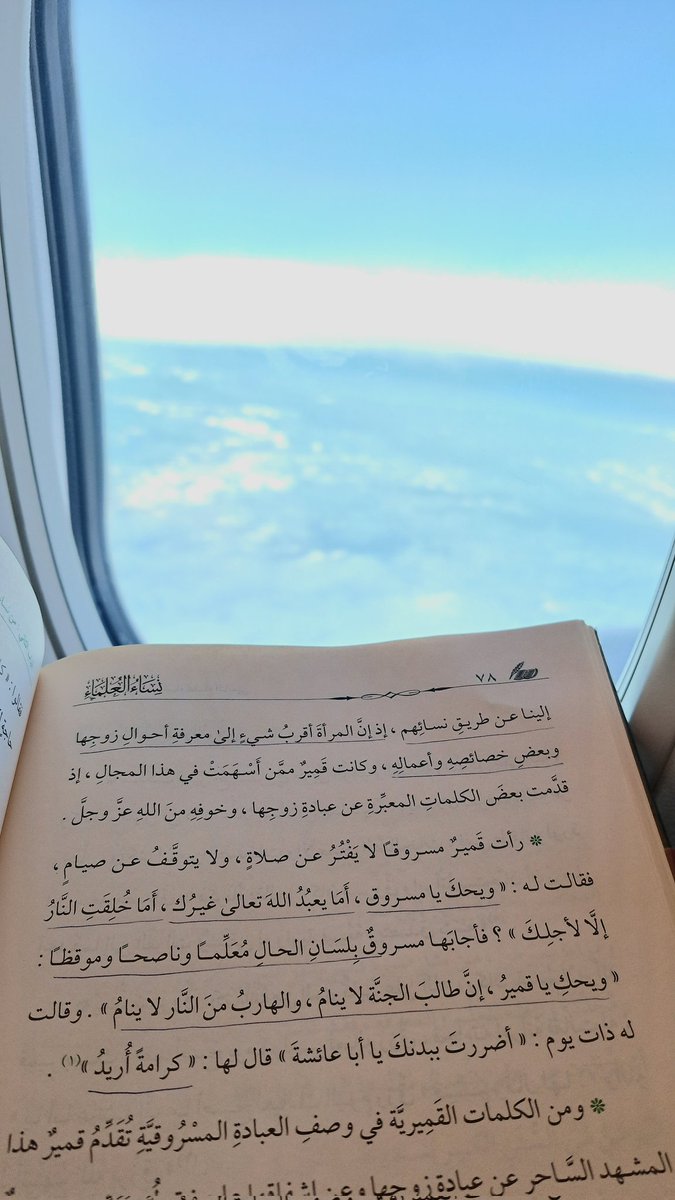 نِسَاءُ العُلَمَاءِ
٧٨
إلينا عن طريق نسائِهم ، إذ إنَّ المرأةَ أقربُ شيءٍ إلىٰ معرفةِ أحوالِ زوجِها
وبعضِ خصائصِهِ وأعمالِهِ ، وكانت قَمِيرٌ ممَّن أَسْهَمَتْ في هذا المجالِ ، إذ
قدَّمت بعضَ الكلماتِ المعبِّرةِ عن عبادةِ زوجِها ، وخوفِهِ منَ اللهِ عزَّ وجلَّ .
* رأت قَميرٌ مسروقاً لا يَفْتُرُ عـن صـلاةٍ ، ولا يتوقَّـفُ عـن صيـامٍ ،
فقالت له : « ويحكَ يا مسروق ، أَمَا يعبُدُ اللهَ تعالىٰ غيرُك ، أَمَا خُلِقَتِ النَّارُ
إلَّا لأجلِكَ » ؟ فأجابَها مسروقٌ بِلِسَانِ الحـالِ مُعَلِّمـاً وناصحـاً وموقظـاً :
« ويحكِ يا قميرُ ، إنَّ طالبَ الجنَّة لا ينامُ ، والهاربُ منَ النَّار لا ينامُ » . وقالت
له ذات يوم : « أضررتَ ببدنكَ يا أبا عائشةَ » قال لها : « كرامةً أُريدُ »(١) .
* ومن الكلمات القَمِيريَّة في وصفِ العبادةِ المسْرُوقيَّةِ تُقَدِّمُ قميرٌ هذا
المشهد السَّاحر عن عبادةِ زوجها وعن